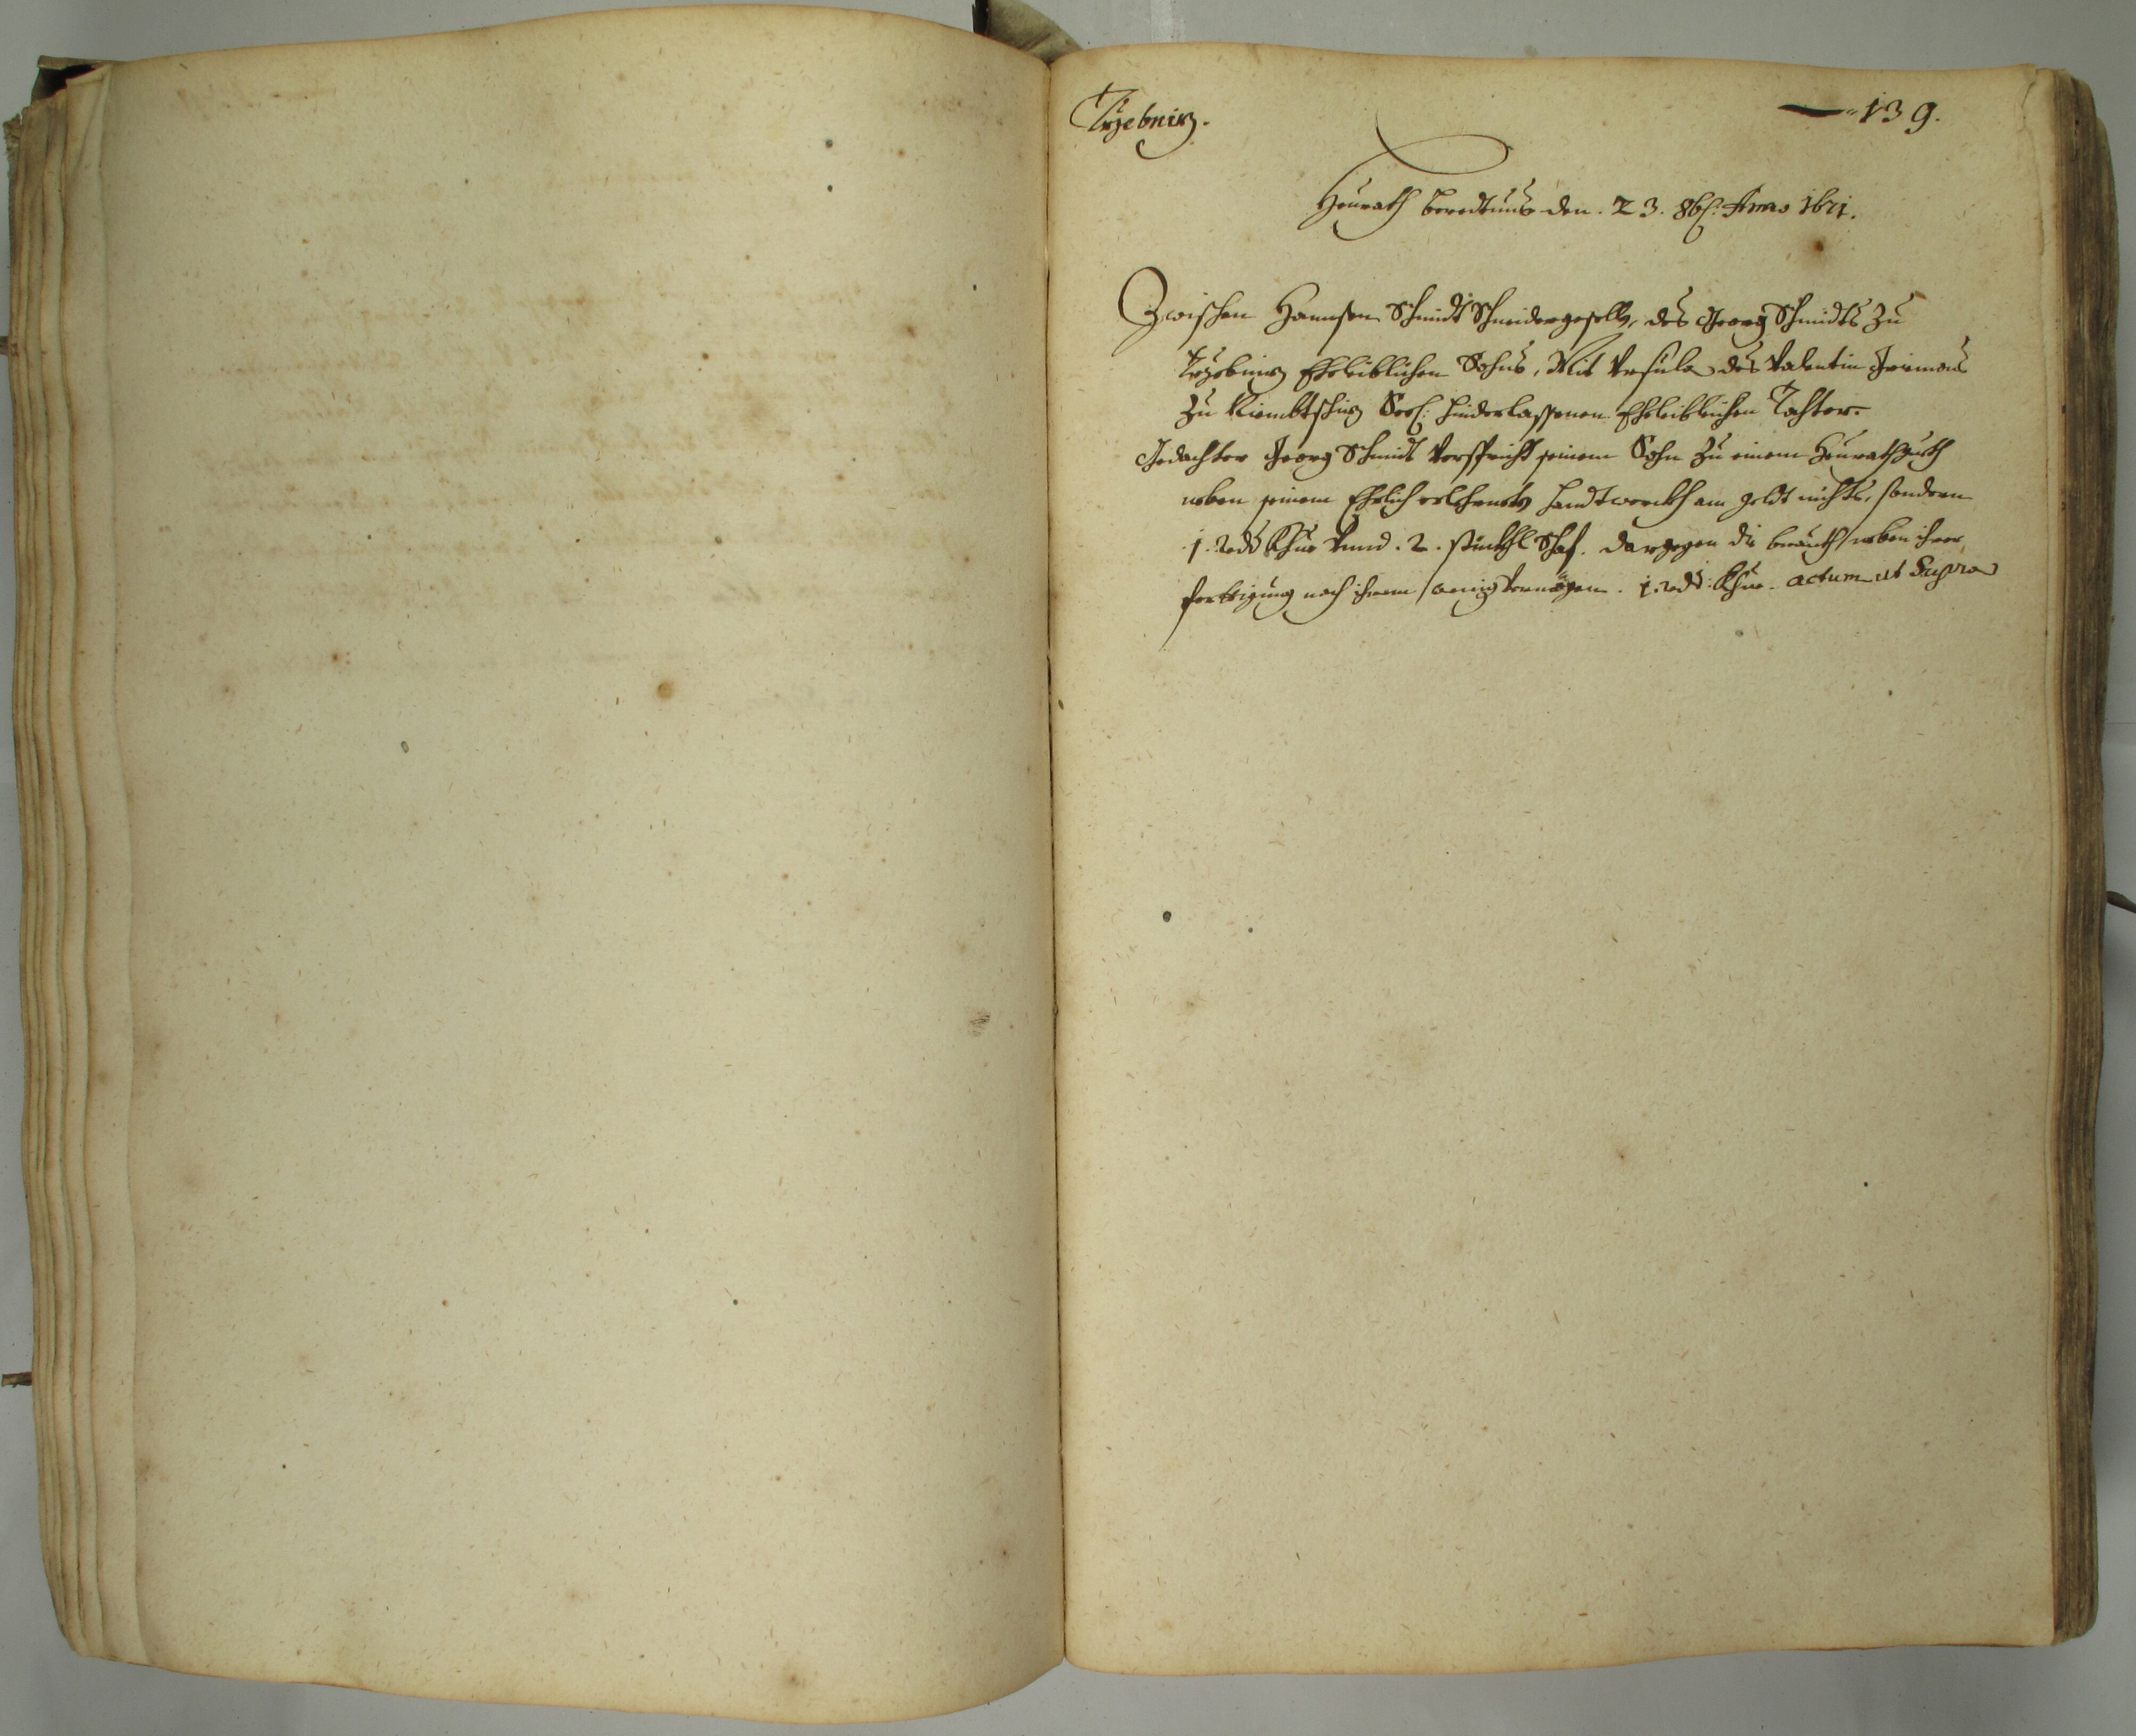 Trzebnitz.
139.
Heurath beredtnus den. 23. 8b[er]: Anno 1671.
Zwischen Hannsen Schmidt Schneidergeselln, des Georg Schmidts zu
Trzebnitz Eheleiblichen Sohns, Mit Ursula des Valentin
zu Seel: hinderlassenen Eheleiblichen Tochter.
Gedachter Georg Schmidt verspricht seinem Sohn zu einem Heurathgueth
neben seinem Ehrlich erlehrneten handtwerckh am geldt nichts, sondern
1. redt Khue vnnd. 2. stückhl Schaf. dargegen die brauth neben ihrer
fertigung nach ihrem wenig vermögen. 1. redt: Khue. actum ut Supra